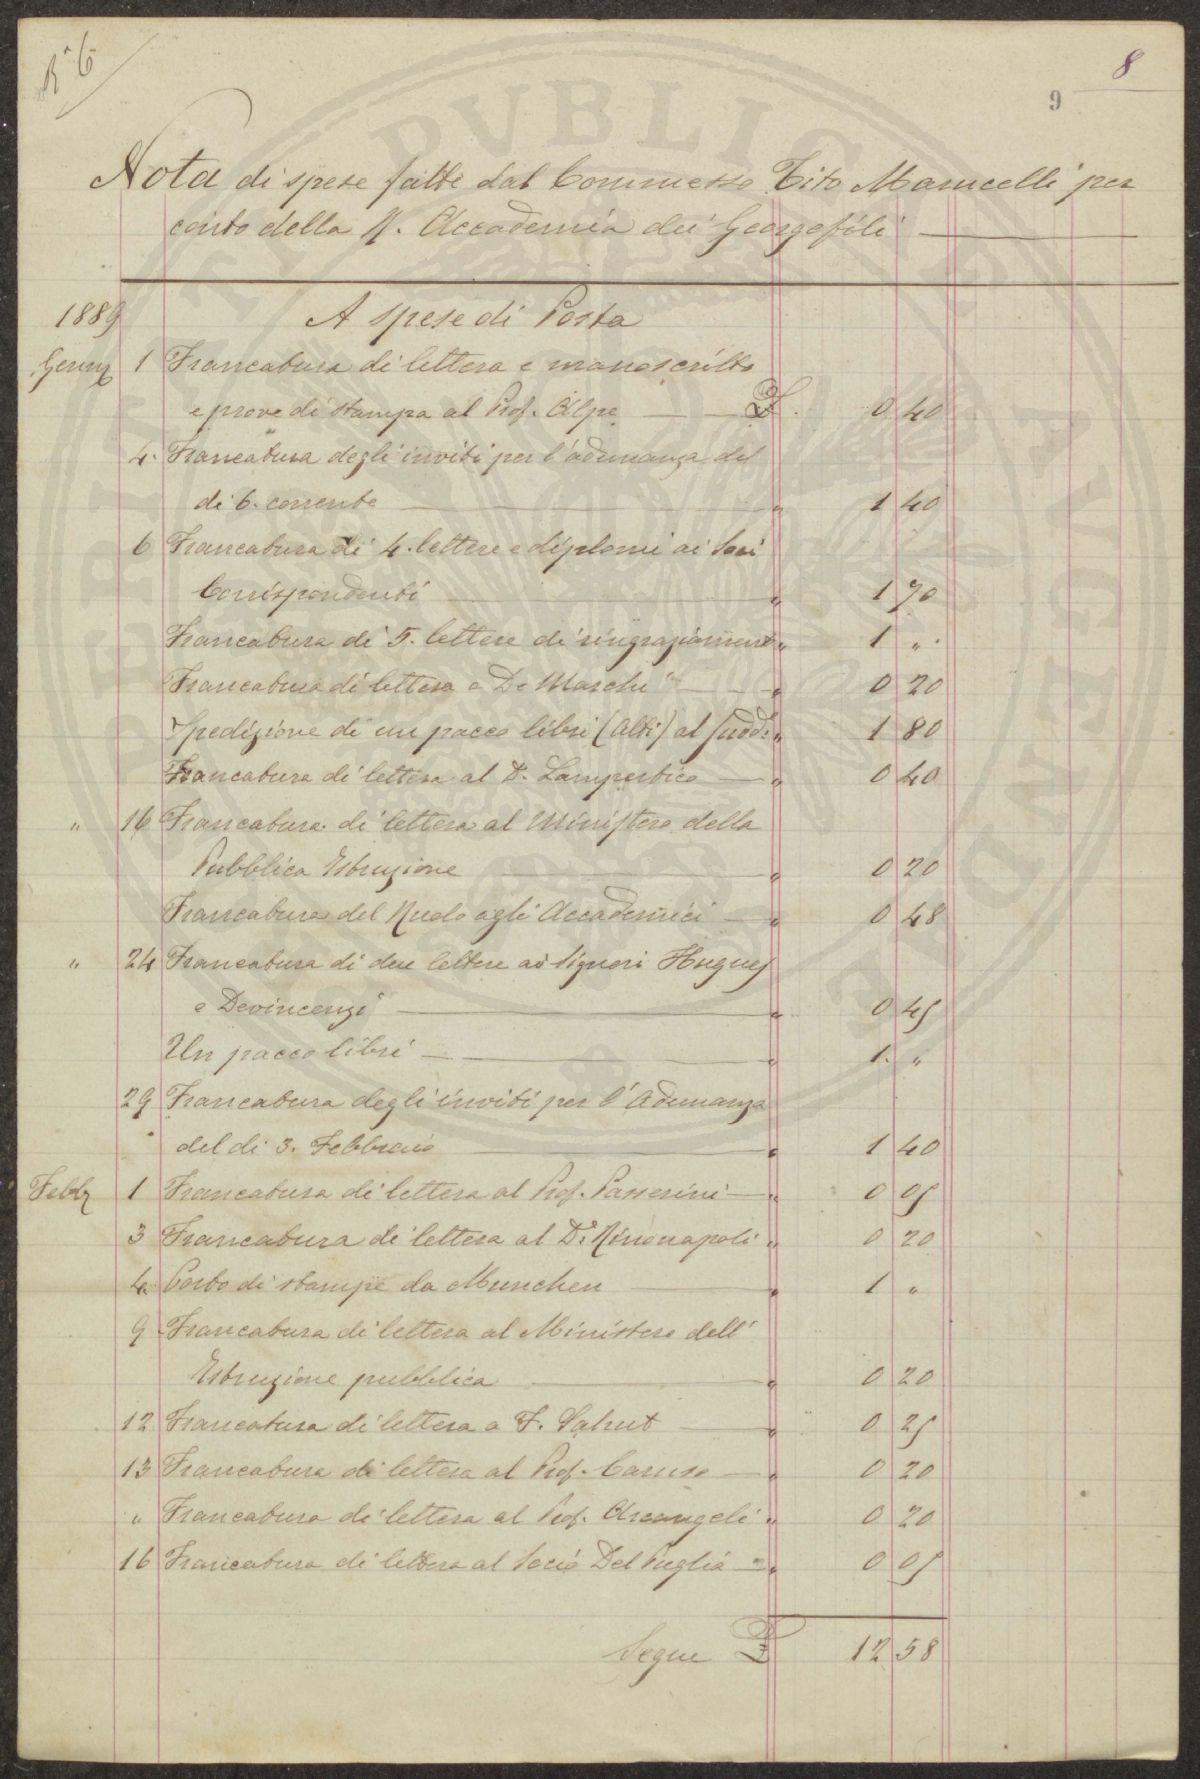 N° 6
8
9
Nota di spese fatte dal Commesso Tito Marucelli per
conto della R. Accademia dei Georgofili
1889 A spese di Posta
Genn 1 Francatura di lettera e manoscritto
e prove di stampa al Prof. Alpe £ 0 40
4. Francatura degli inviti per l'adunanza del
di 6. corrente " 1 40
6 Francatura di 4. lettere e diplomi ai Soci
Corrispondenti " 1 70
Francatura di 5. lettere di ringraziament " 1 "
Francatura di lettera a De Marchi " 0 20
Spedizione di un pacco libri (Atti) al sudd: " 1 80
Francatura di lettera al D. Lampertico " 0 40
" 16 Francatura di lettera al Ministero della
Pubblica Istruzione " 0 20
Francatura del Ruolo agli Accademici " 0 48
" 24 Francatura di due lettere ai Signori Hugues
e Devincenzi " 0 45
Un pacco libri " 1. "
29 Francatura degli inviti per l'Adunanza
del di 3. Febbraio " 1 40
Febb 1 Francatura di lettera al Prof. Passerini " 0 05
3 Francatura di lettera al Dr Minonapoli " 0 20
4 Porto di stampe da Munchen " 1 "
9 Francatura di lettera al Ministero dell'
Istruzione pubblica " 0 20
12 Francatura di lettera a F. Sahut " 0 25
13 Francatura di lettera al Prof. Caruso " 0 20
" Francatura di lettera al Prof. Arcangeli " 0 20
16 Francatura di lettera al Socio Del Puglia " 0 05
Segue £ 12 58